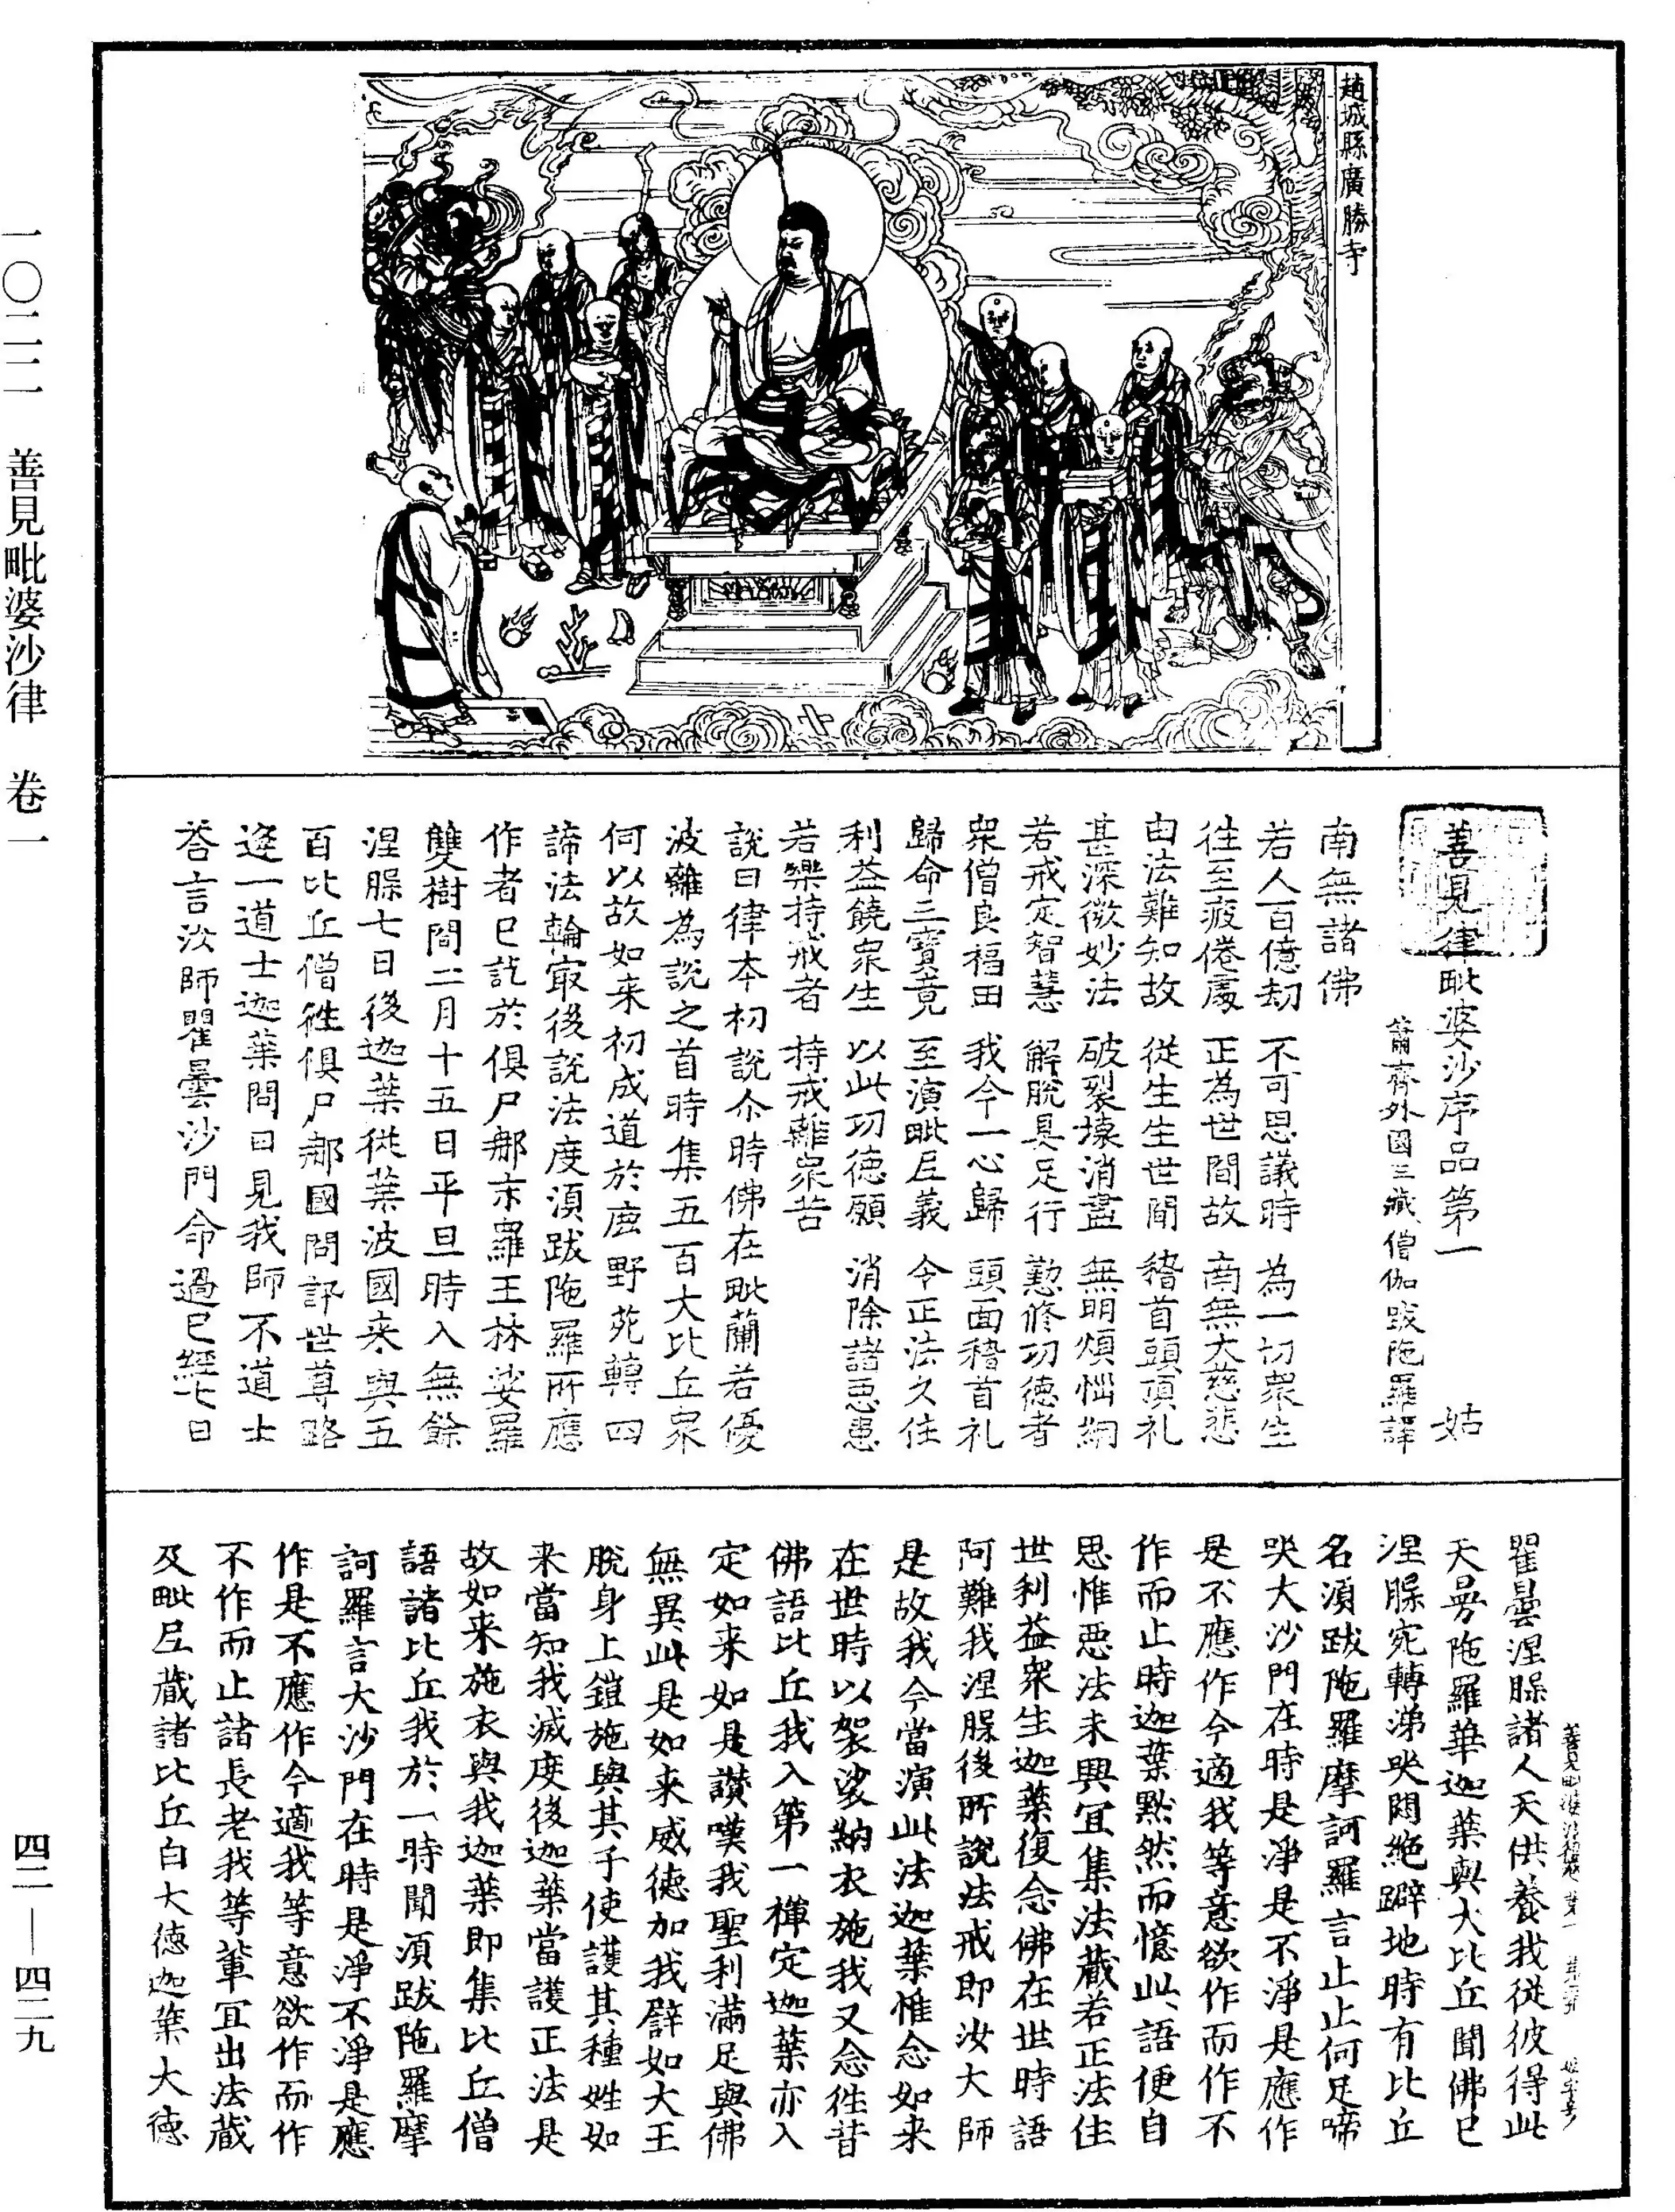 一〇二二 善見毗婆沙律 卷一
趙城縣廣勝寺
善見律毗婆沙序品第一 姑
蕭齊外國三藏僧伽跋陁羅譯
南無諸佛
若人百億劫 不可思議時 為一切衆生
往至疲倦處 正為世間故 南無大慈悲
由法難知故 從生生世間 稽首頭頂礼
甚深微妙法 破裂壞消盡 無明煩惱網
若戒定智慧 解脫具足行 懃修功德者
衆僧良福田 我今一心歸 頭面稽首礼
歸命三寶竟 至演毗尼義 令正法久住
利益饒衆生 以此功德願 消除諸惡患
若樂持戒者 持戒離衆苦
說曰律本初說尒時佛在毗蘭若優
波離為說之首時集五百大比丘衆
何以故如来初成道於鹿野苑轉四
諦法輪㝡後說法度湏跋陁羅所應
作者已訖於俱尸那末羅王林娑羅
雙樹間二月十五日平旦時入無餘
涅槃七日後迦葉從葉波國来與五
百比丘僧徃俱尸那國問訊世尊路
逢一道士迦葉問曰見我師不道士
荅言汝師瞿曇沙門命過已經七日
瞿曇涅槃諸人天供養我從彼得此
天曼陁羅華迦葉與大比丘聞佛已
涅槃宛轉涕哭悶絕躃地時有比丘
名湏跋陁羅摩訶羅言止止何足啼
哭大沙門在時是淨是不淨是應作
是不應作今適我等意欲作而作不
作而止時迦葉黙然而憶此語便自
思惟惡法未興宜集法藏若正法住
世利益衆生迦葉復念佛在世時語
阿難我涅槃後所說法戒即汝大師
是故我今當演此法迦葉惟念如来
在世時以袈裟納衣施我又念徃昔
佛語比丘我入第一禪定迦葉亦入
定如来如是讃嘆我聖利滿足與佛
無異此是如来威德加我譬如大王
脫身上鎧施與其子使護其種姓如
来當知我滅度後迦葉當護正法是
故如来施衣與我迦葉即集比丘僧
語諸比丘我於一時聞湏跋陁羅摩
訶羅言大沙門在時是淨不淨是應
作是不應作今適我等意欲作而作
不作而止諸長老我等軰宜出法藏
及毗尼藏諸比丘白大德迦葉大德
四二—四二九